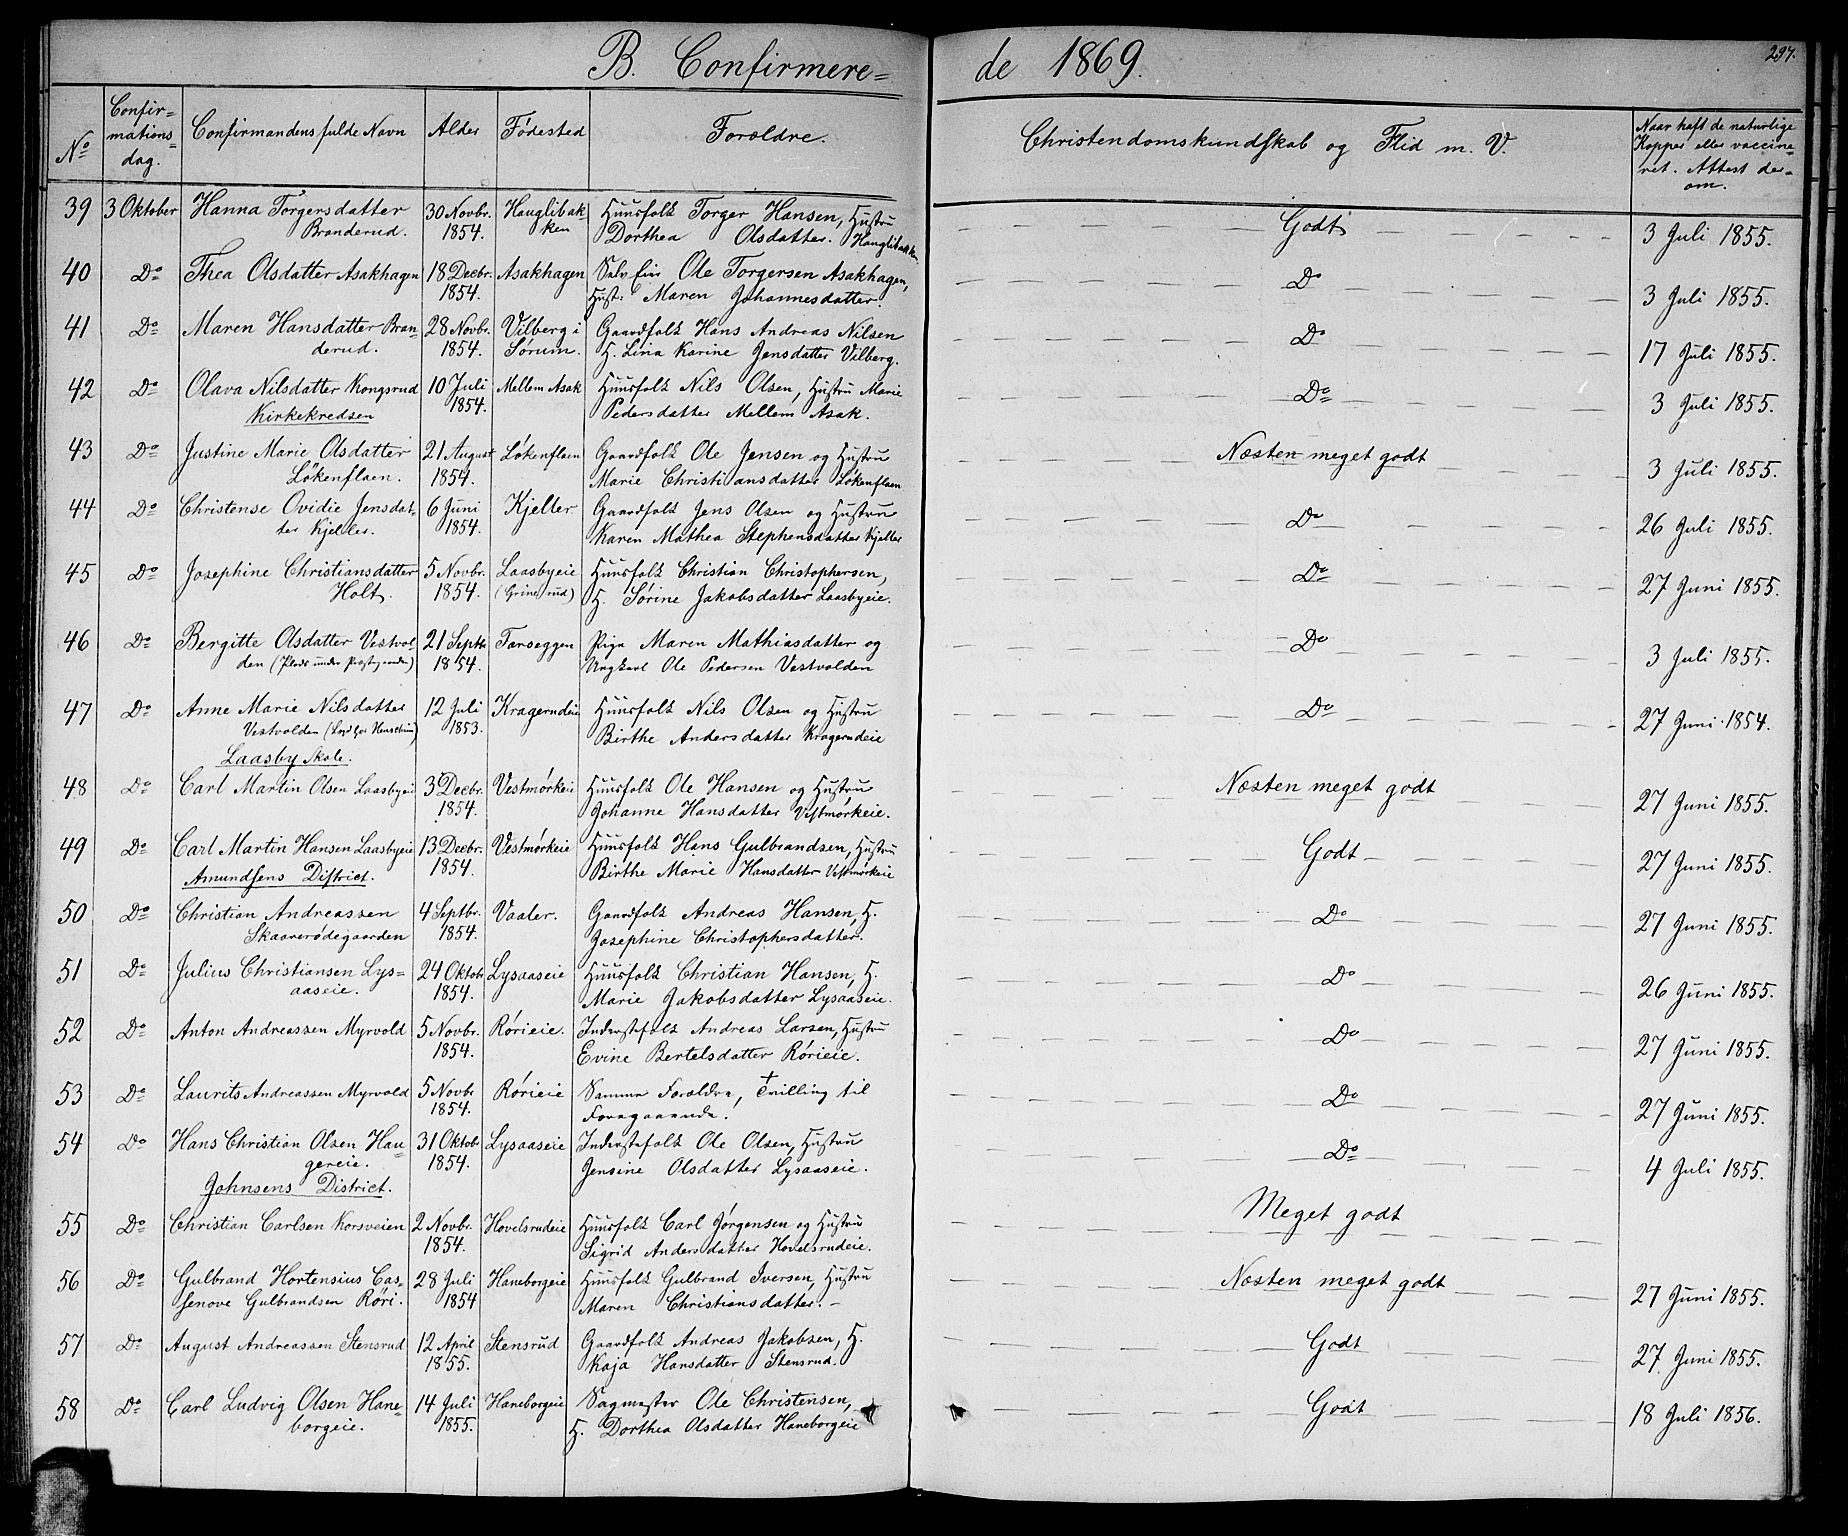 B. Confirmere= de 1869. 297.
No Confir=mations=dag. Confirmandens fulde Navn Alder Fødested Forældre. Christendomskundskab og Flid m. V. Naar haft de naturlige Kopper eller vaccine=ret. Attest der=om.
39 3 Oktober Hanna Torgersdatter 30 Novbr. Hauglibak Huusfolk Torger Hansen, Hustru Godt 3 Juli 1855.
Branderud. 1854. ken Dorthea Olsdatter. Hauglibakken.
40 Do Thea Olsdatter Asakhagen 18 Decbr. Asakhagen Selveier Ole Torgersen Asakhagen, Do 3 Juli 1855.
1854. Hust: Maren Johannesdatter.
41 Do Maren Hansdatter Bran= 28 Novbr. Vilberg i Gaardfolk Hans Andreas Nilsen Do 17 Juli 1855.
derud. 1854. Sørum. H. Lina Karine Jensdatter Vilberg.
42 Do Olava Nilsdatter Kongsrud 10 Juli Mellem Asak Huusfolk Nils Olsen, Hustru Marie Do 3 Juli 1855.
1854. Pedersdatter Mellem Asak.
Kirkekredsen
43 Do Justine Marie Olsdatter 21 August Løkenflaen Gaardfolk Ole Jensen og Hustru Næsten meget godt 3 Juli 1855.
Løkenflaen. 1854. Marie Christiansdatter Løkenflaen
44 Do Christense Ovidie Jensdat= 6 Juni Kjeller Gaardfolk Jens Olsen og Hustru Do 26 Juli 1855.
ter Kjeller. 1854. Karen Mathea Stephensdatter Kjeller
45 Do Josephine Christiansdatter 5 Novbr. Laasbyeie Huusfolk Christian Christophersen, Do 27 Juni 1855.
Holt. 1854. (Grinerud) H. Sørine Jakobsdatter Laasbyeie.
46 Do Bergitte Olsdatter Vestvol= 21 Septbr. Farseggen Pige Maren Mathiasdatter og Do 3 Juli 1855.
den 1854. Ungkarl Ole Pedersen Vestvolden
47 Do Anne Marie Nilsdatter 12 Juli Kragerudeie Huusfolk Nils Olsen og Hustru Do 27 Juni 1854.
Vestvolden 1853. Birthe Andersdatter Kragerudeie
Laasby Skole.
48 Do Carl Martin Olsen Laasbyeie 3 Decbr. Vestmørkeie Huusfolk Ole Hansen og Hustru Næsten meget godt 27 Juni 1855.
1854. Johanne Hansdatter Vestmørkeie.
49 Do Carl Martin Hansen Laasbyeie 13 Decbr. Vestmørkeie Huusfolk Hans Gulbrandsen, Hustru Godt 27 Juni 1855.
1854. Birthe Marie Hansdatter Vestmørkeie
Amundsens District.
50 Do Christian Andreassen 4 Septbr. Vaaler. Gaardfolk Andreas Hansen, H. Do 27 Juni 1855.
Skaarerødegaarden 1854. Josephine Christophersdatter.
51 Do Julius Christiansen Lys= 24 Oktobr. Lysaaseie Huusfolk Christian Hansen, H. Do 26 Juni 1855.
aaseie. 1854. Marie Jakobsdatter Lysaaseie.
52 Do Anton Andreassen Myrvold 5 Novbr. Rørieie. Inderstefolk Andreas Larsen, Hustru Do 27 Juni 1855.
1854. Evine Bertelsdatter Rørieie.
53 Do Laurits Andreassen Myrvold 5 Novbr. Rørieie Samme Forældre, Tvilling til Do 27 Juni 1855.
1854. Foregaaende.
54 Do Hans Christian Olsen Hau= 31 Oktobr. Lysaaseie Inderstefolk Ole Olsen, Hustru Do 4 Juli 1855.
gereie. 1854. Jensine Olsdatter Lysaaseie.
Johnsens District.
55 Do Christian Carlsen Korsveien 2 Novbr. Hovelsrudeie Huusfolk Carl Jørgensen og Hustru Meget godt
1854. Sigrid Andersdatter Hovelsrudeie.
56 Do Gulbrand Hortensius Cas= 28 Juli Haneborgeie Huusfolk Gulbrand Iversen, Hustru Næsten meget godt 27 Juni 1855.
senove Gulbrandsen Røri. 1854 Maren Christiansdatter. –
57 Do August Andreassen Stensrud 12 April Stensrud Gaardfolk Andreas Jakobsen, H. Godt 27 Juni 1855.
1855. Kaja Hansdatter Stensrud.
58 Do Carl Ludvig Olsen Hane= 14 Juli Haneborgeie Sagmester Ole Christensen, Godt 18 Juli 1856.
borgeie. 1855. H. Dorthea Olsdatter Haneborgeie